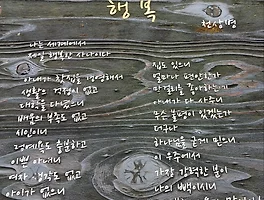 행복
천상병
나는 세계에서
제일 행복한 사나이다
아내가 찻집을 경영해서
생활의 걱정이 없고
대학을 다녔으니
배움의 부족도 없고
시인이니
명예욕도 충분하고
이쁜 아내니
여자 생각도 없고
아이가 없으니
집도 있으니
얼마나 편안한가
막걸리를 좋아하는데
아내가 다 사주니
무슨 불평이 있겠는가
더구나
하나님을 굳게 믿으니
이 우주에서
가장 강력한 분이
나의 빽이시니